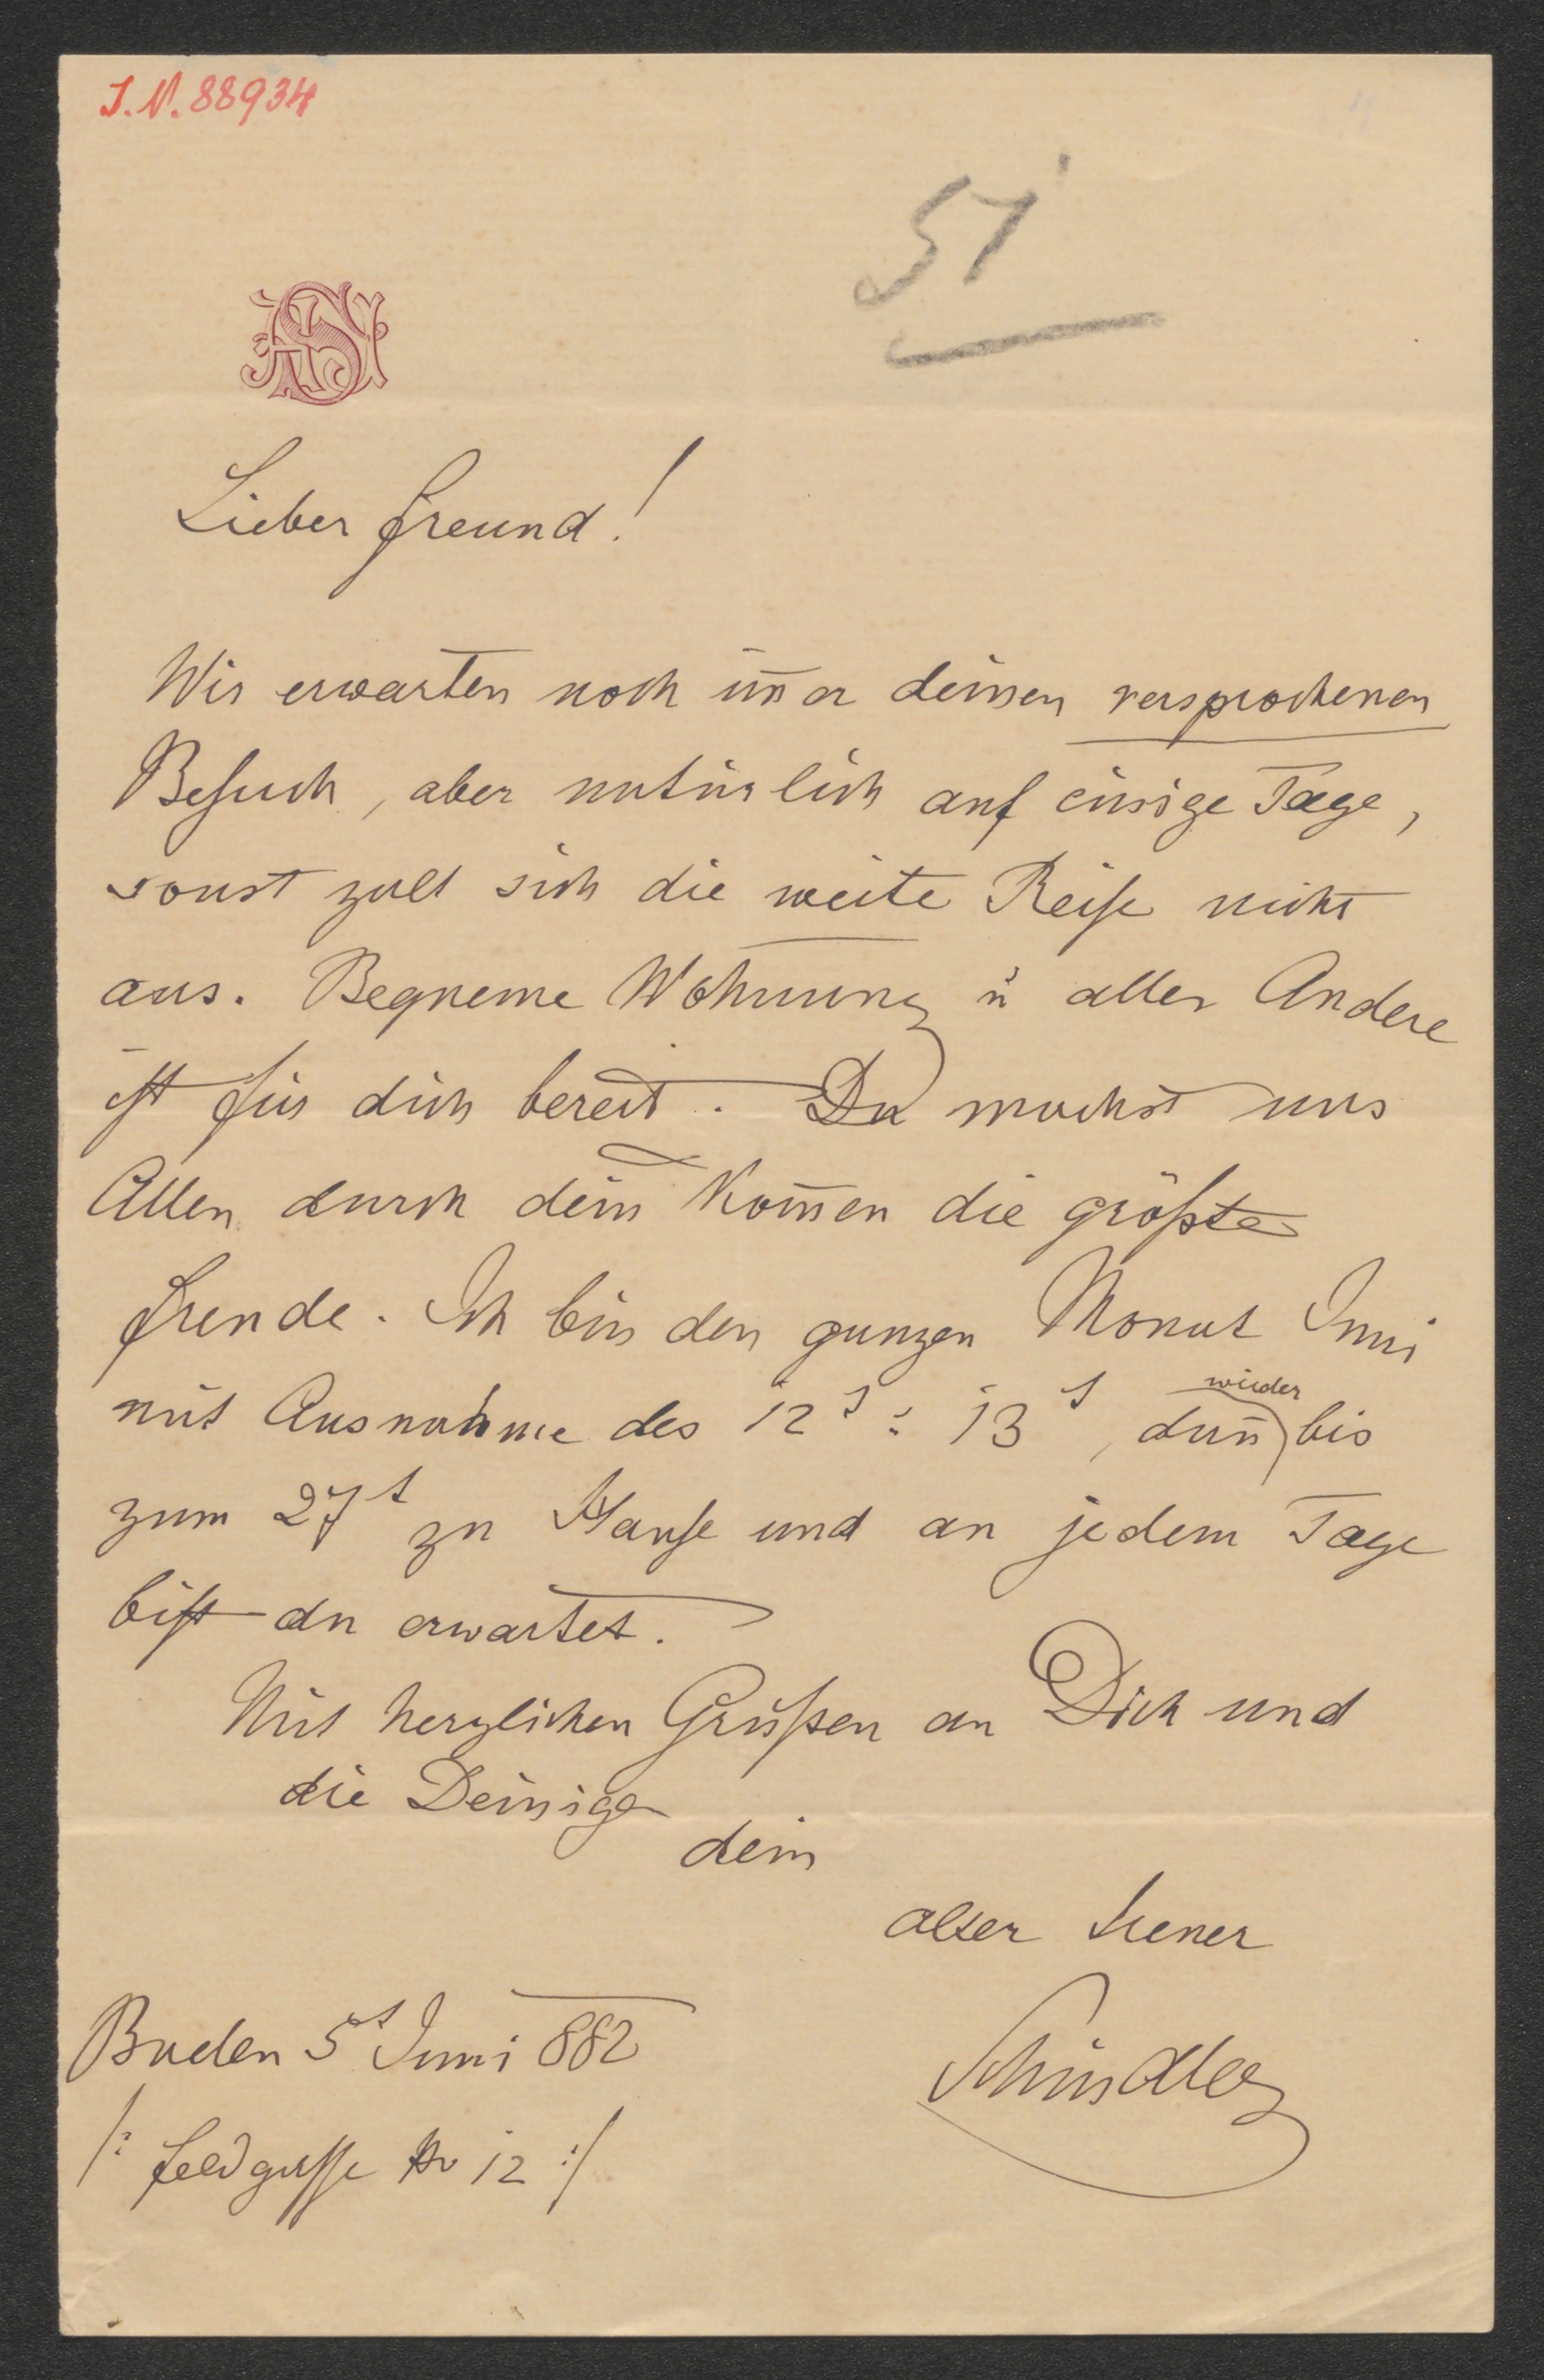 I. N. 88934
51
Lieber Freund!
Wir erwarten noch im̄er deinen versprochenen
Besuch, aber natürlich auf einige Tage,
sonst zalt sich die weite Reise nicht
aus. Bequeme Wohnung u alles Andere
ist für dich bereit. Du machst uns
Allen durch dein Kom̄en die größte
Freude. Ich bin den ganzen Monat Juni
mit Ausnahme des 12t : 13t, dan̄ wieder bis
zum 27t zu Hause und an jedem Tage
bist du erwartet.
Mit herzlichen Grüßen an Dich und
die Deinigen
dein
alter treuer
Schindler
Baden 5t Juni 882
/: Feldgasse No 12 :/